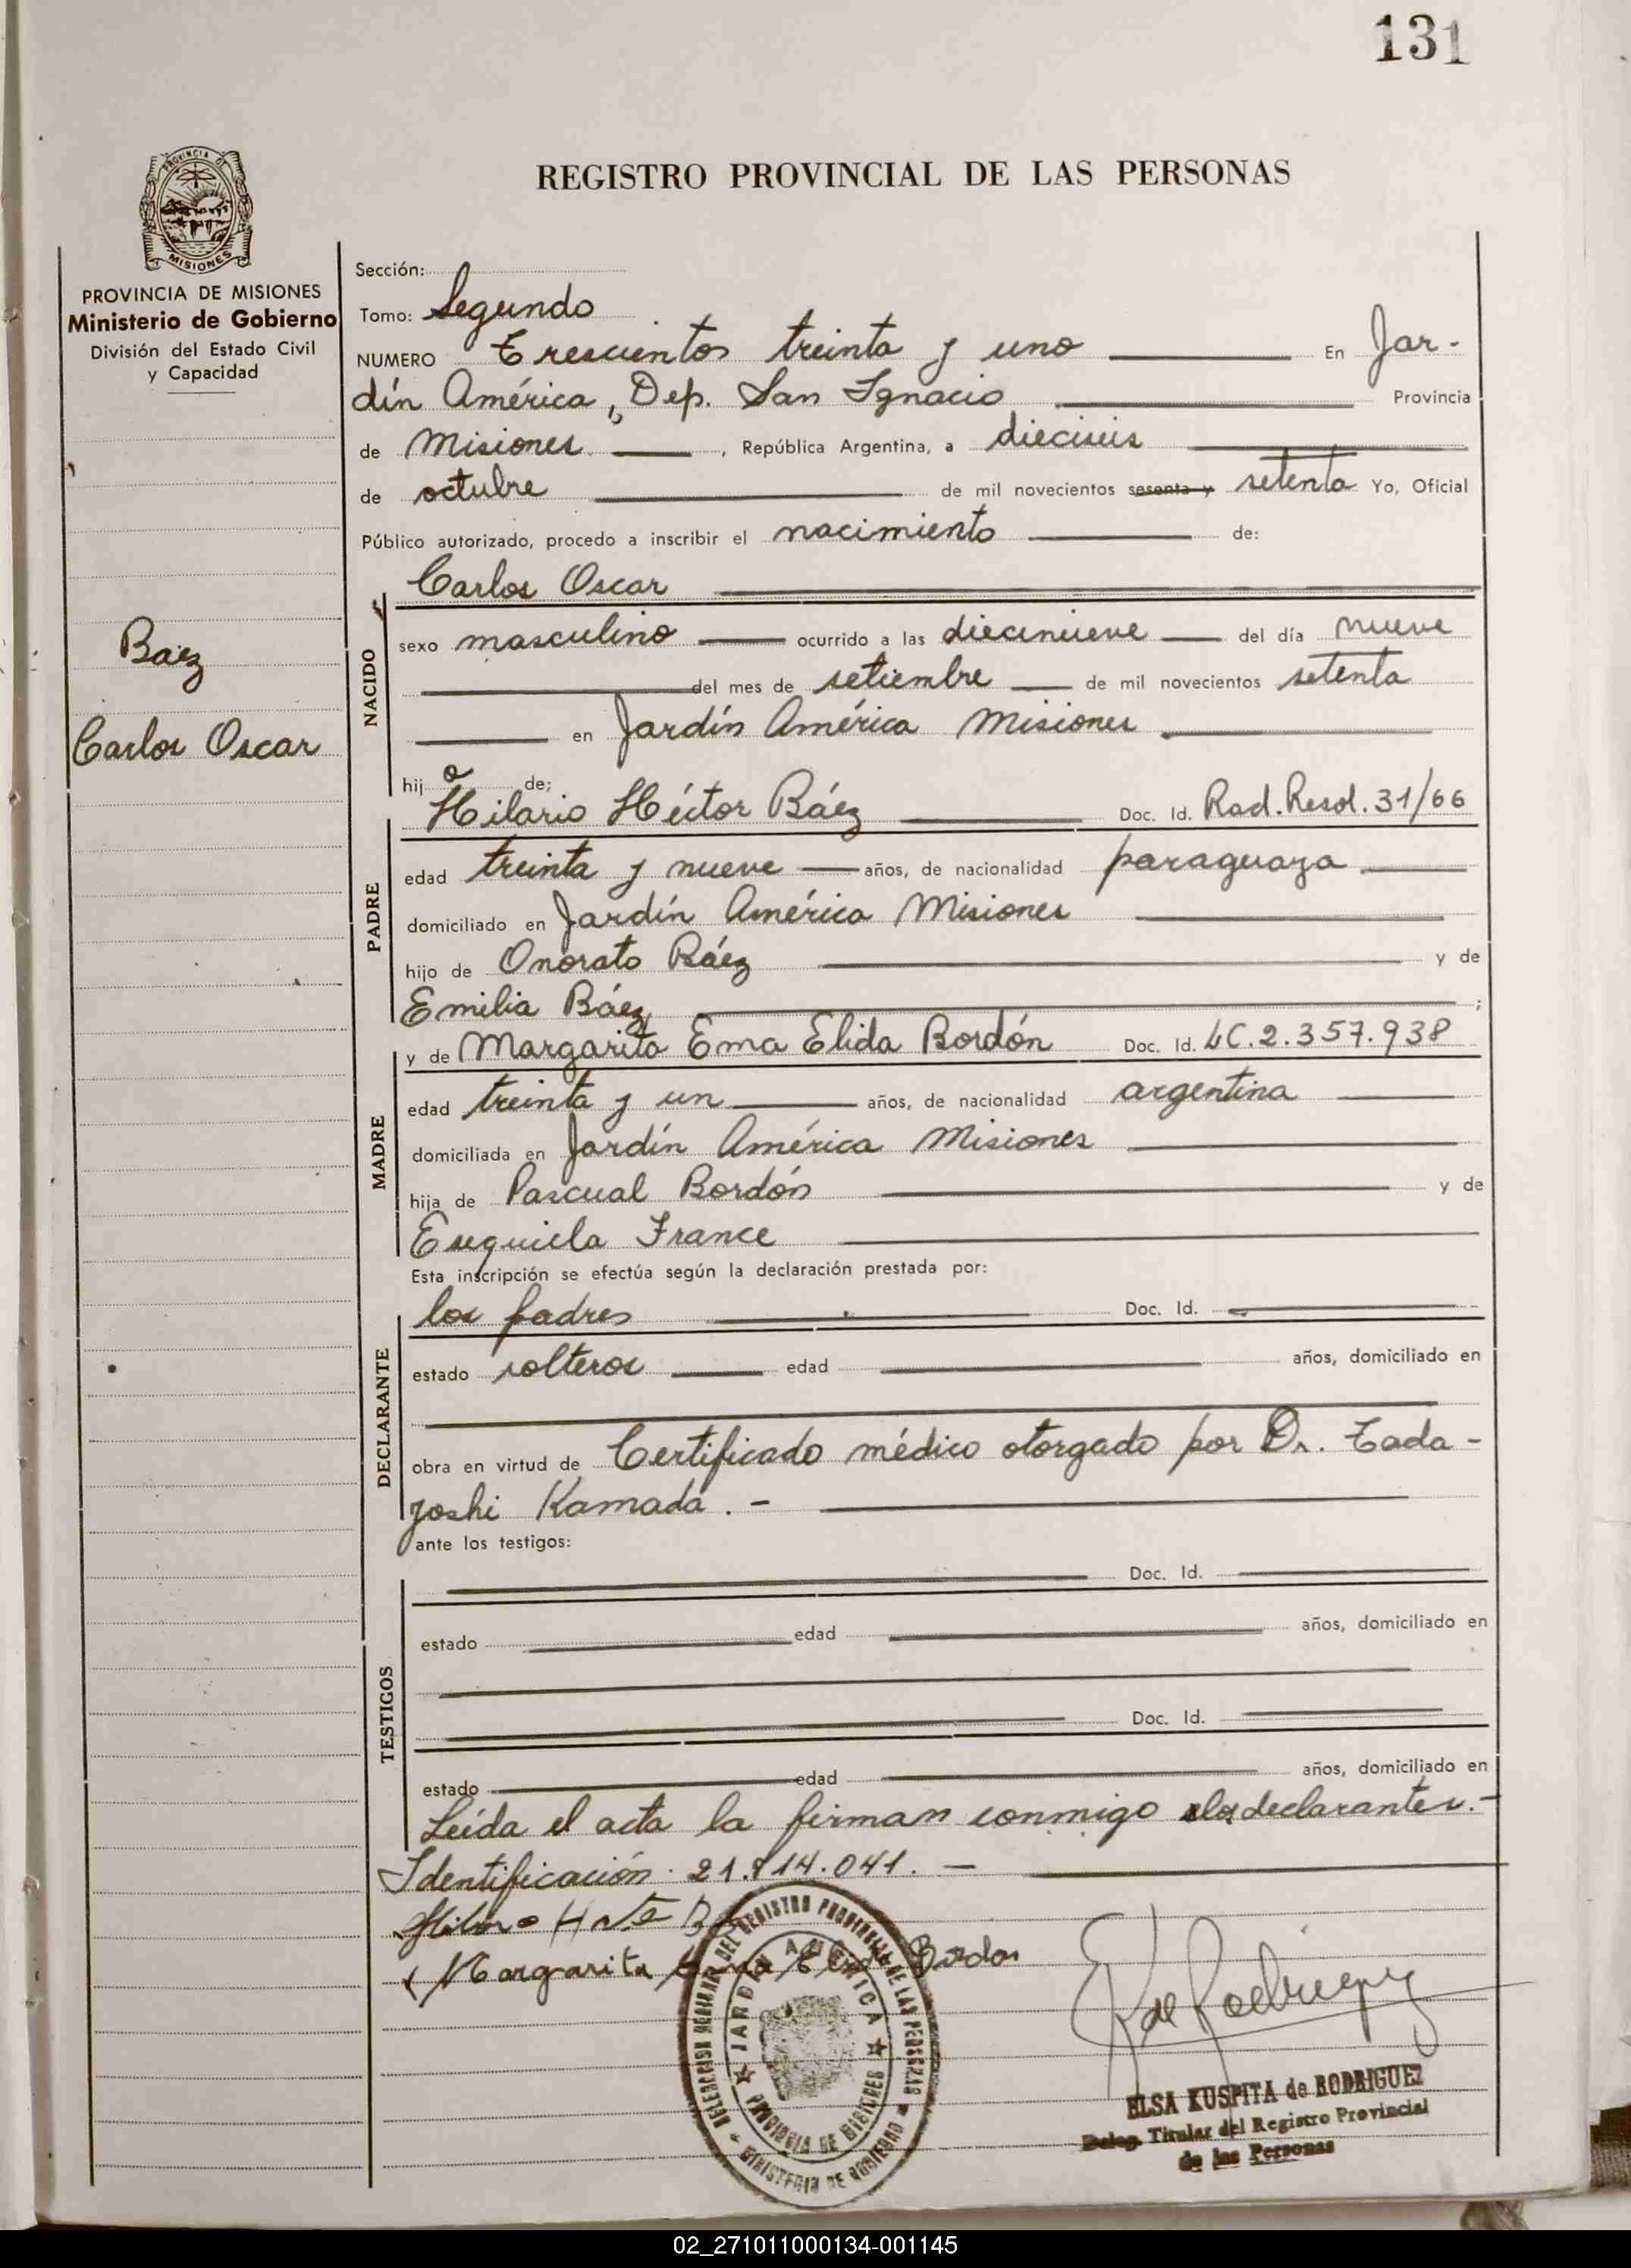 131
REGISTRO PROVINCIAL DE LAS PERSONAS
PROVINCIA DE
MISIONES
PROVINCIA DE MISIONES
Ministerio de Gobierno
División del Estado Civil
y Capacidad
Baez
Carlos Oscar
Sección:
Tomo: Segundo
NUMERO Trescientos treinta y uno En Jar-
dín América, Dep. San Ignacio Provincia
de Misiones, República Argentina, a dieciseis
de octubre de mil novecientos sesenta y setenta Yo, Oficial
Público autorizado, procedo a inscribir el nacimiento de:
Carlos Oscar
NACIDO
sexo masculino ocurrido a las diecinueve del día nueve
del mes de setiembre de mil novecientos setenta
en Jardín América Misiones
hijo de;
Hilario Héctor Báez Doc. Id. Rad. Resol. 31/66
PADRE
edad treinta y nueve años, de nacionalidad paraguaya
domiciliado en Jardín América Misiones
hijo de Onorato Báez y de
Emilia Báez ;
y de Margarita Ema Elida Bordón Doc. Id. LC. 2.357.938
MADRE
edad treinta y un años, de nacionalidad argentina
domiciliada en Jardín América Misiones
hija de Pascual Bordón y de
France
Esta inscripción se efectúa según la declaración prestada por:
los padres Doc. Id.
DECLARANTE
estado solteros edad años, domiciliado en
obra en virtud de Certificado médico otorgado por Dr. Tada-
yoshi Kamada.-
ante los testigos:
Doc. Id.
TESTIGOS
estado edad años, domiciliado en
Doc. Id.
estado edad años, domiciliado en
Leída el acta la firman conmigo declarantes.-
Identificación: 21.914.041.-
Margarita Ema Elida Bordon
DELEGACION DEL REGISTRO PROVINCIAL DE LAS PERSONAS
JARDIN AMERICA
PROVINCIA DE MISIONES
MINISTERIO DE GOBIERNO
K de Rodriguez
ELSA KUSPITA de RODRIGUEZ
Deleg. Titular del Registro Provincial
de las Personas
02_271011000134-001145